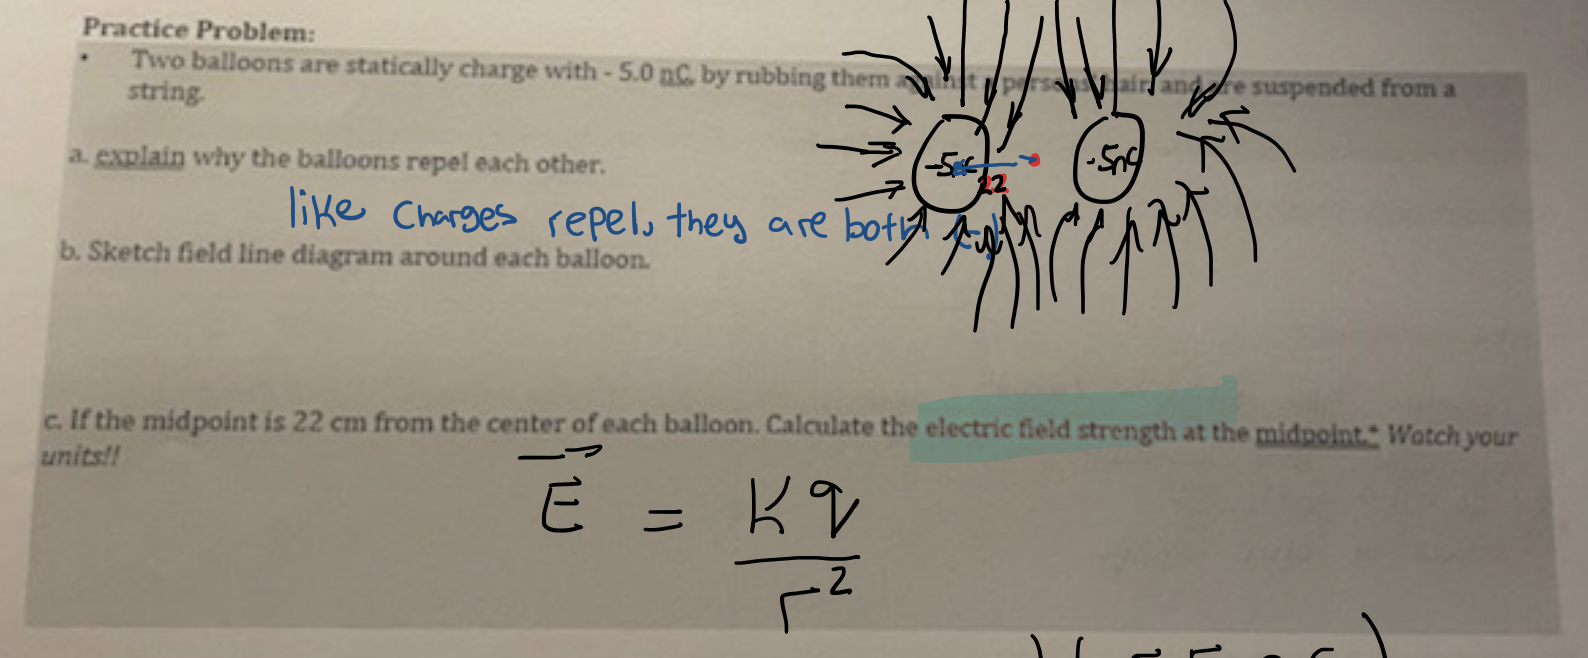 Practice Problem:
• Two balloons are statically charge with - 5.0 nC, by rubbing them against a persons hair, and are suspended from a
string.
-5nC
-5nC
22
a. explain why the balloons repel each other.
like charges repel, they are both (-)
b. Sketch field line diagram around each balloon.
c. If the midpoint is 22 cm from the center of each balloon. Calculate the electric field strength at the midpoint.* Watch your
units!!
E = Kq
r²